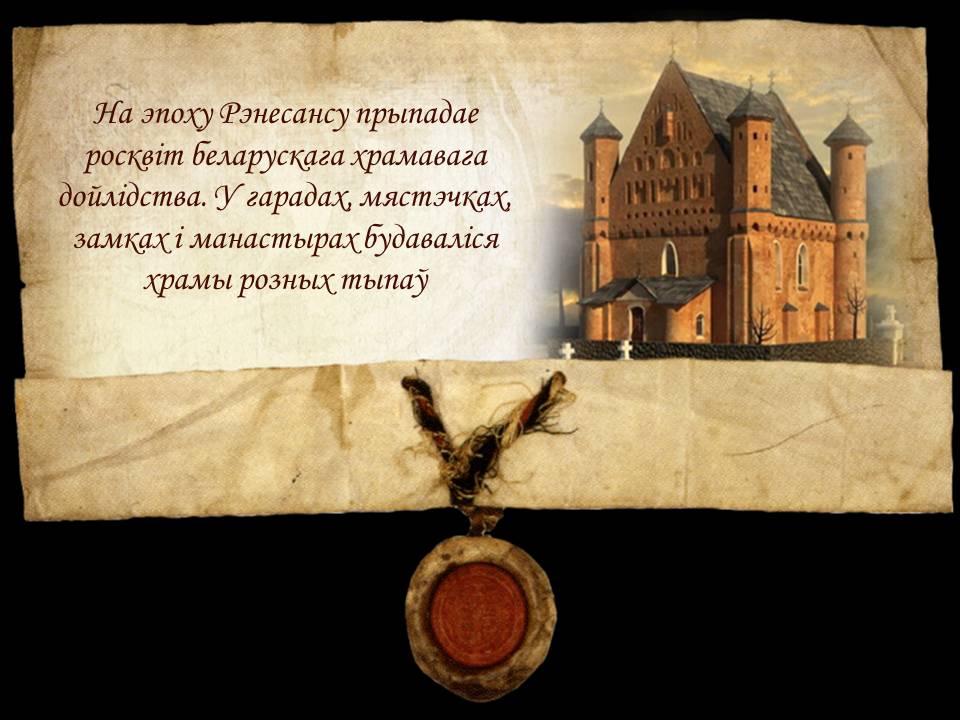 На эпоху Рэнесансу прыпадае
росквіт беларускага храмавага
дойлідства. У гарадах, мястэчках,
замках і манастырах будаваліся
храмы розных тыпаў